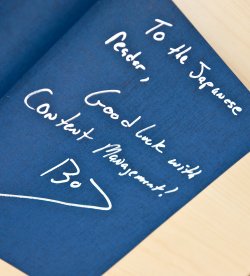 To the Japanese
reader,
Good luck with
Content Management!
Bo